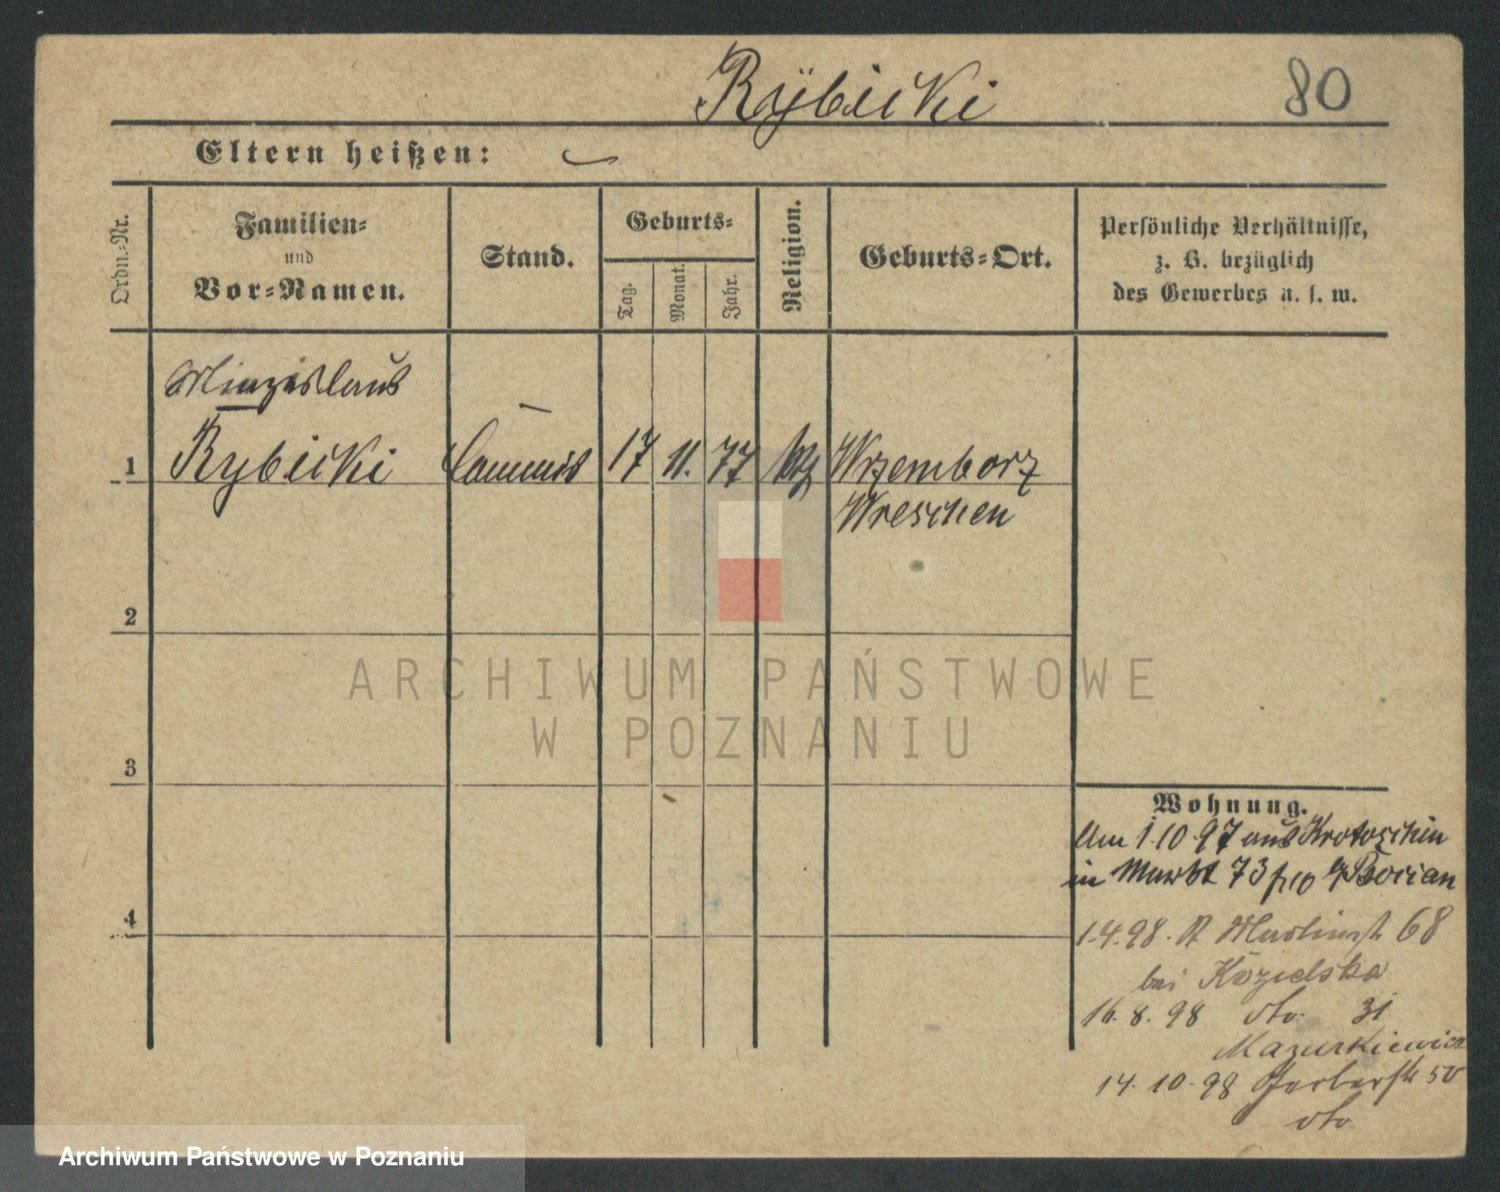 Rÿbicki 80
Eltern heißen:
Ordn.=Nr.
Familien=
und
Vor=Namen.
Stand.
Geburts=
Tag.
Monat.
Jahr.
Religion.
Geburts=Ort.
Persönliche Verhältnisse,
z. B. bezüglich
des Gewerbes u. s. w.
Miezislaus
1 Rybicki Commis 17 11. 77 ktz Wrzemborz
Wreschen
2
3
4
Wohnung.
Am 1.10.97 aus Krotoschin
in Markt 73 Bocian
1.4.98. St Martinstr 68
bei Kozielska
16.8.98 dto 31
Mazurkiewicz
14.10.98 Gerberstr 50
dto
ARCHIWUM PAŃSTWOWE
W POZNANIU
Archiwum Państwowe w Poznaniu